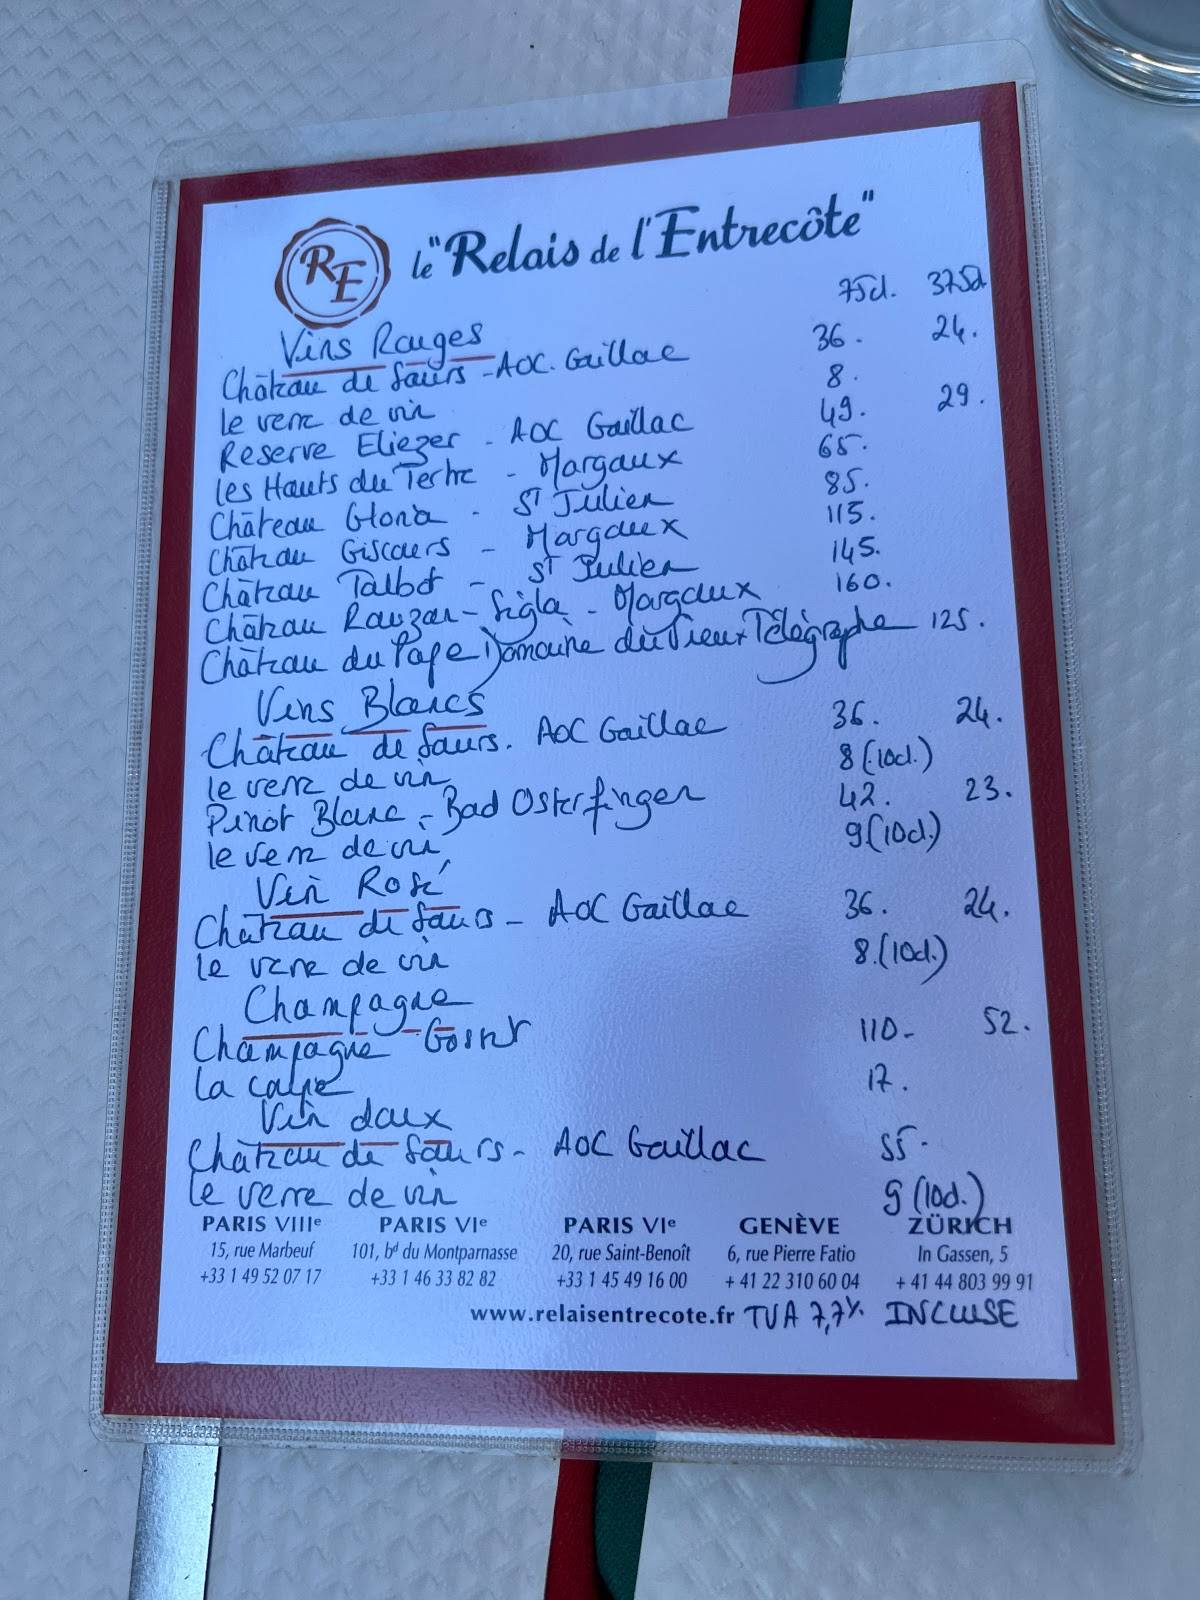 RE
le "Relais de l'Entrecôte"
75cl. 375cl
Vins Rouges
Château de Saurs - AOC. Gaillac 36. 24.
le verre de vin 8.
Reserve Eliezer - AOC Gaillac 49. 29.
les Hauts du Tertre - Margaux 65.
Château Gloria - St Julien 85.
Château Giscours - Margaux 115.
Château Talbot - St Julien 145.
Château Rauzan-Ségla - Margaux 160.
Château du Pape Domaine du Vieux Télégraphe 125.
Vins Blancs
Château de Saurs. AOC Gaillac 36. 24.
le verre de vin 8 (10cl.)
Pinot Blanc - Bad Osterfingen 42. 23.
le verre de vin 9 (10cl.)
Vin Rosé
Château de Saurs - AOC Gaillac 36. 24.
le verre de vin 8. (10cl.)
Champagne
Champagne Gosset 110- 52.
la coupe 17.
Vin doux
Château de Saurs - AOC Gaillac 55-
le verre de vin 9 (10cl.)
PARIS VIIIe PARIS VIe PARIS VIe GENÈVE ZÜRICH
15, rue Marbeuf 101, bd du Montparnasse 20, rue Saint-Benoît 6, rue Pierre Fatio In Gassen, 5
+33 1 49 52 07 17 +33 1 46 33 82 82 +33 1 45 49 16 00 + 41 22 310 60 04 + 41 44 803 99 91
www.relaisentrecote.fr TVA 7,7% INCLUSE